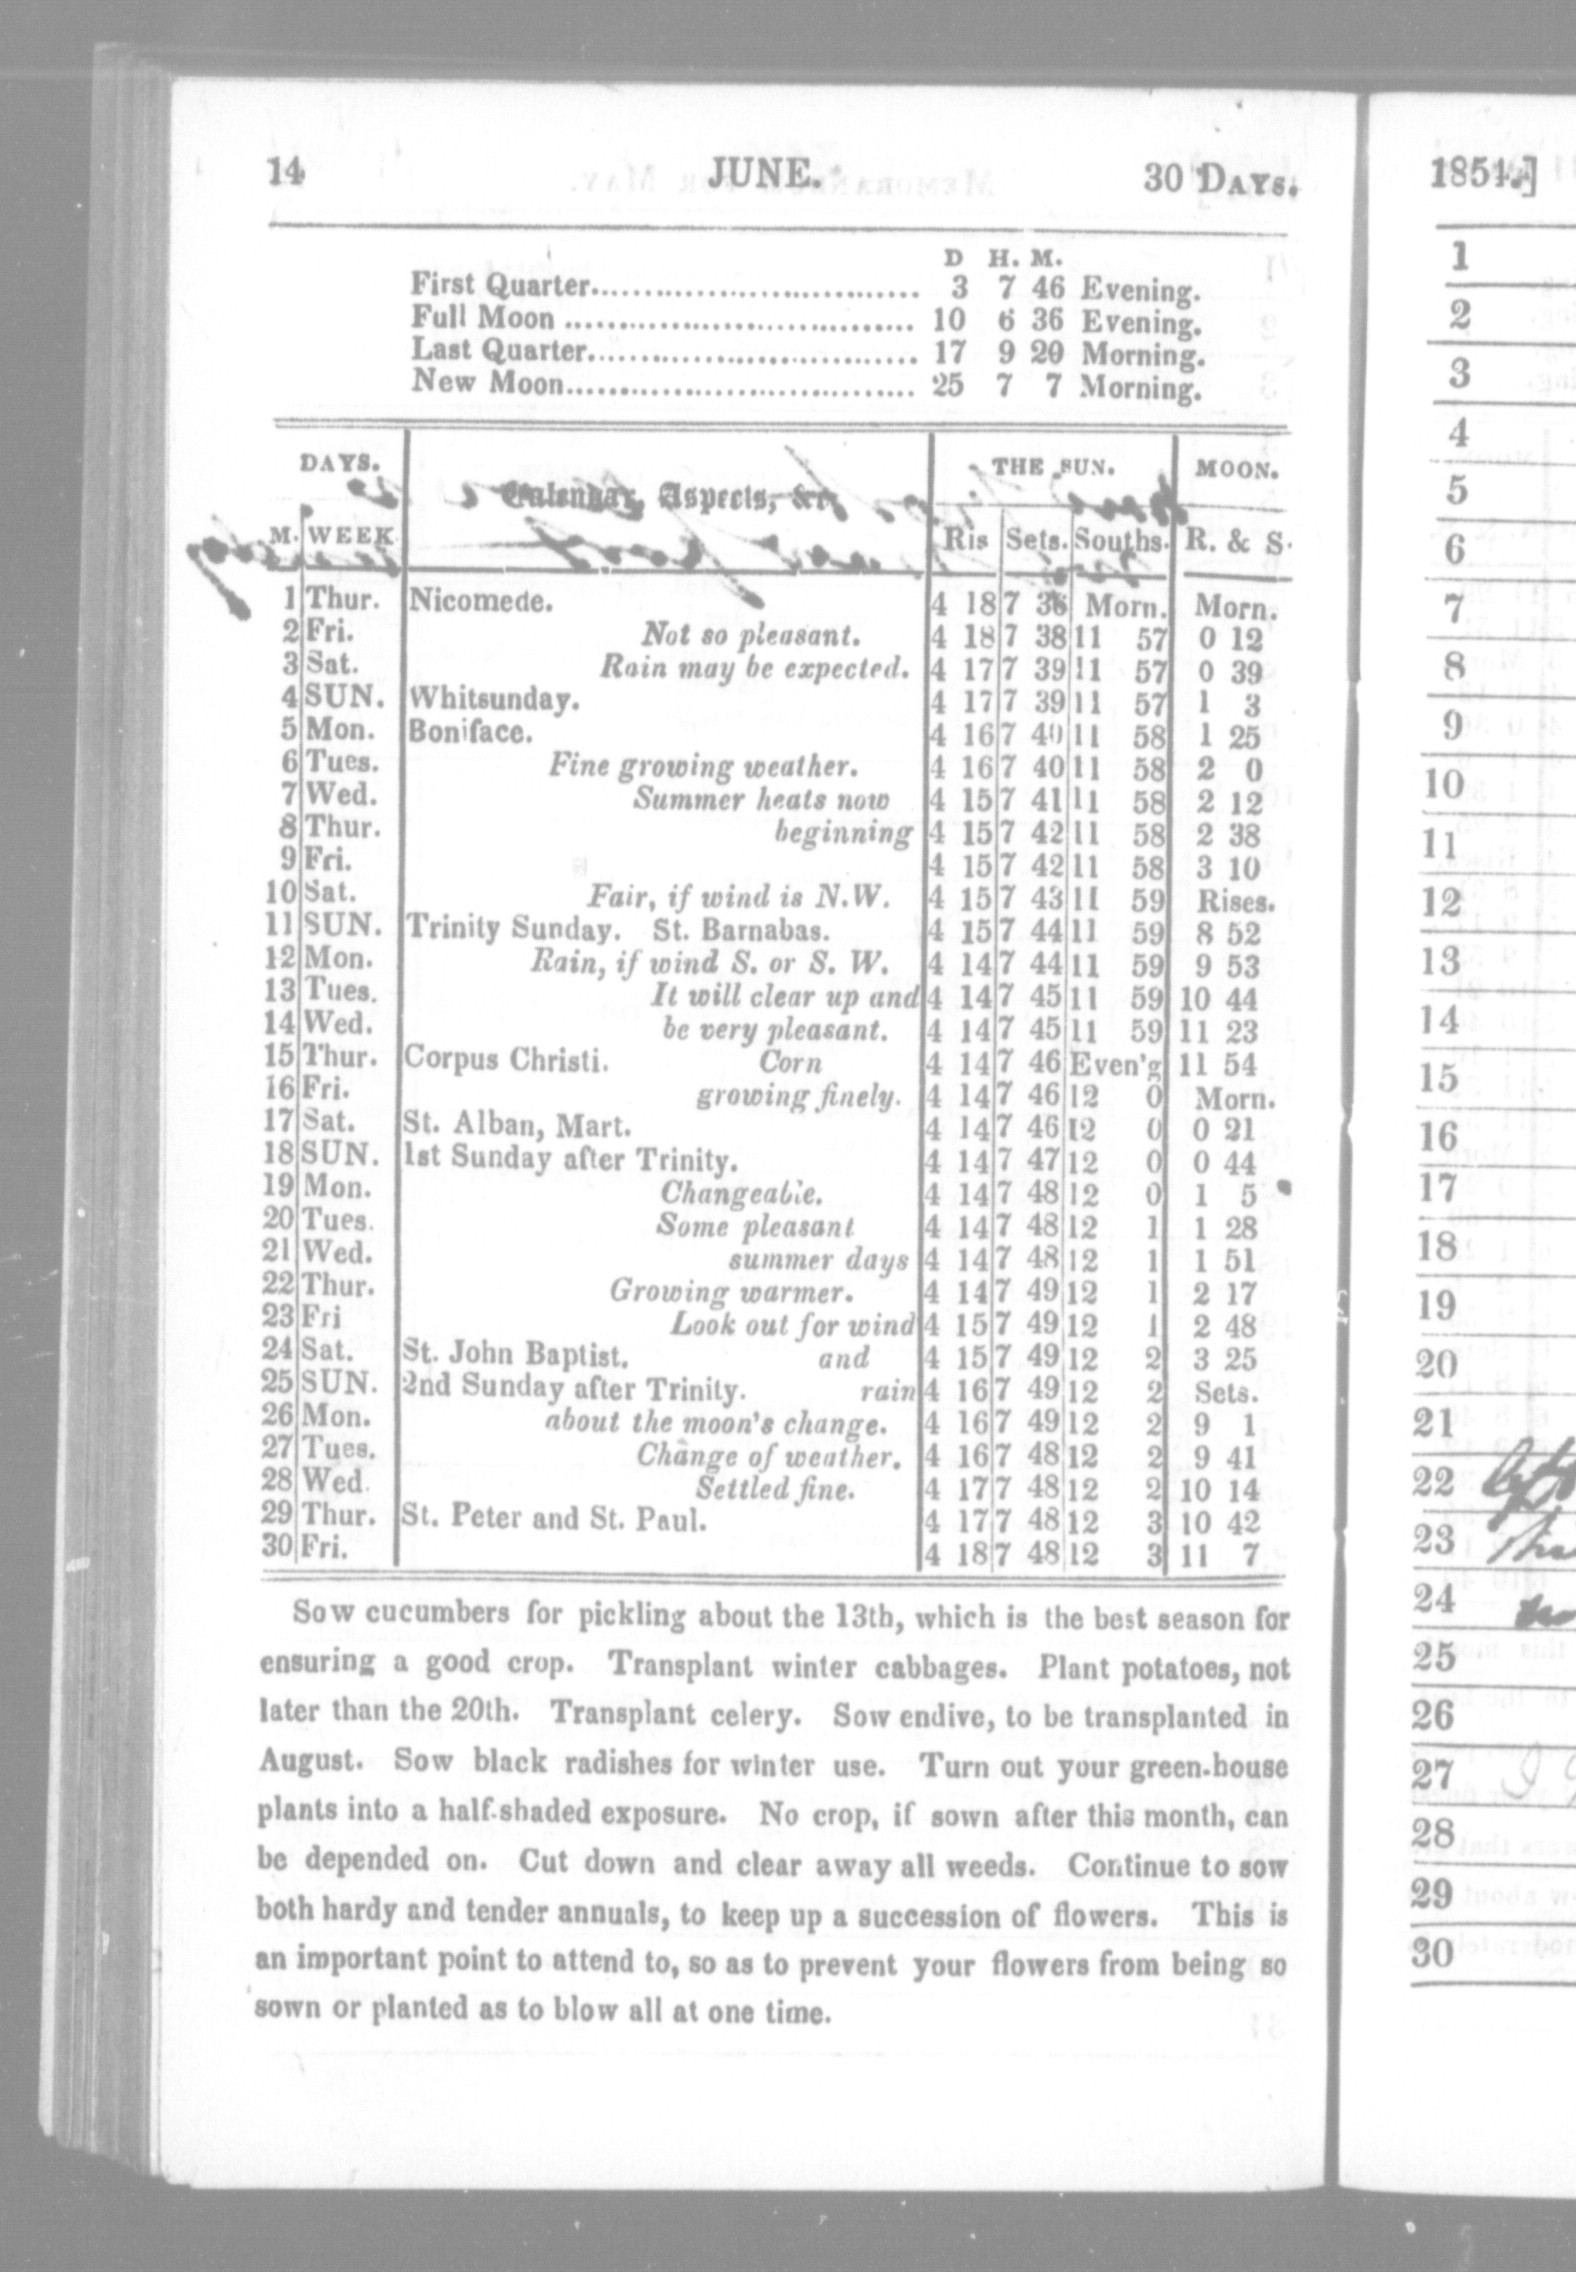 14 JUNE. 30 DAYS.
D H. M.
First Quarter................................ 3 7 46 Evening.
Full Moon ................................ 10 6 36 Evening.
Last Quarter................................ 17 9 20 Morning.
New Moon................................ 25 7 7 Morning.
DAYS. Calendar, Aspects, &c. THE SUN. MOON.
M. WEEK Ris Sets. Souths. R. & S.
1 Thur. Nicomede. 4 18 7 36 Morn. Morn.
2 Fri. Not so pleasant. 4 18 7 38 11 57 0 12
3 Sat. Rain may be expected. 4 17 7 39 11 57 0 39
4 SUN. Whitsunday. 4 17 7 39 11 57 1 3
5 Mon. Boniface. 4 16 7 40 11 58 1 25
6 Tues. Fine growing weather. 4 16 7 40 11 58 2 0
7 Wed. Summer heats now 4 15 7 41 11 58 2 12
8 Thur. beginning 4 15 7 42 11 58 2 38
9 Fri. 4 15 7 42 11 58 3 10
10 Sat. Fair, if wind is N.W. 4 15 7 43 11 59 Rises.
11 SUN. Trinity Sunday. St. Barnabas. 4 15 7 44 11 59 8 52
12 Mon. Rain, if wind S. or S. W. 4 14 7 44 11 59 9 53
13 Tues. It will clear up and 4 14 7 45 11 59 10 44
14 Wed. be very pleasant. 4 14 7 45 11 59 11 23
15 Thur. Corpus Christi. Corn 4 14 7 46 Even'g 11 54
16 Fri. growing finely. 4 14 7 46 12 0 Morn.
17 Sat. St. Alban, Mart. 4 14 7 46 12 0 0 21
18 SUN. 1st Sunday after Trinity. 4 14 7 47 12 0 0 44
19 Mon. Changeable. 4 14 7 48 12 0 1 5
20 Tues. Some pleasant 4 14 7 48 12 1 1 28
21 Wed. summer days 4 14 7 48 12 1 1 51
22 Thur. Growing warmer. 4 14 7 49 12 1 2 17
23 Fri Look out for wind 4 15 7 49 12 1 2 48
24 Sat. St. John Baptist. and 4 15 7 49 12 2 3 25
25 SUN. 2nd Sunday after Trinity. rain 4 16 7 49 12 2 Sets.
26 Mon. about the moon's change. 4 16 7 49 12 2 9 1
27 Tues. Change of weather. 4 16 7 48 12 2 9 41
28 Wed. Settled fine. 4 17 7 48 12 2 10 14
29 Thur. St. Peter and St. Paul. 4 17 7 48 12 3 10 42
30 Fri. 4 18 7 48 12 3 11 7
Sow cucumbers for pickling about the 13th, which is the best season for
ensuring a good crop. Transplant winter cabbages. Plant potatoes, not
later than the 20th. Transplant celery. Sow endive, to be transplanted in
August. Sow black radishes for winter use. Turn out your green-house
plants into a half-shaded exposure. No crop, if sown after this month, can
be depended on. Cut down and clear away all weeds. Continue to sow
both hardy and tender annuals, to keep up a succession of flowers. This is
an important point to attend to, so as to prevent your flowers from being so
sown or planted as to blow all at one time.
1854.]
1
2
3
4
5
6
7
8
9
10
11
12
13
14
15
16
17
18
19
20
21
22
23
24
25
26
27
28
29
30